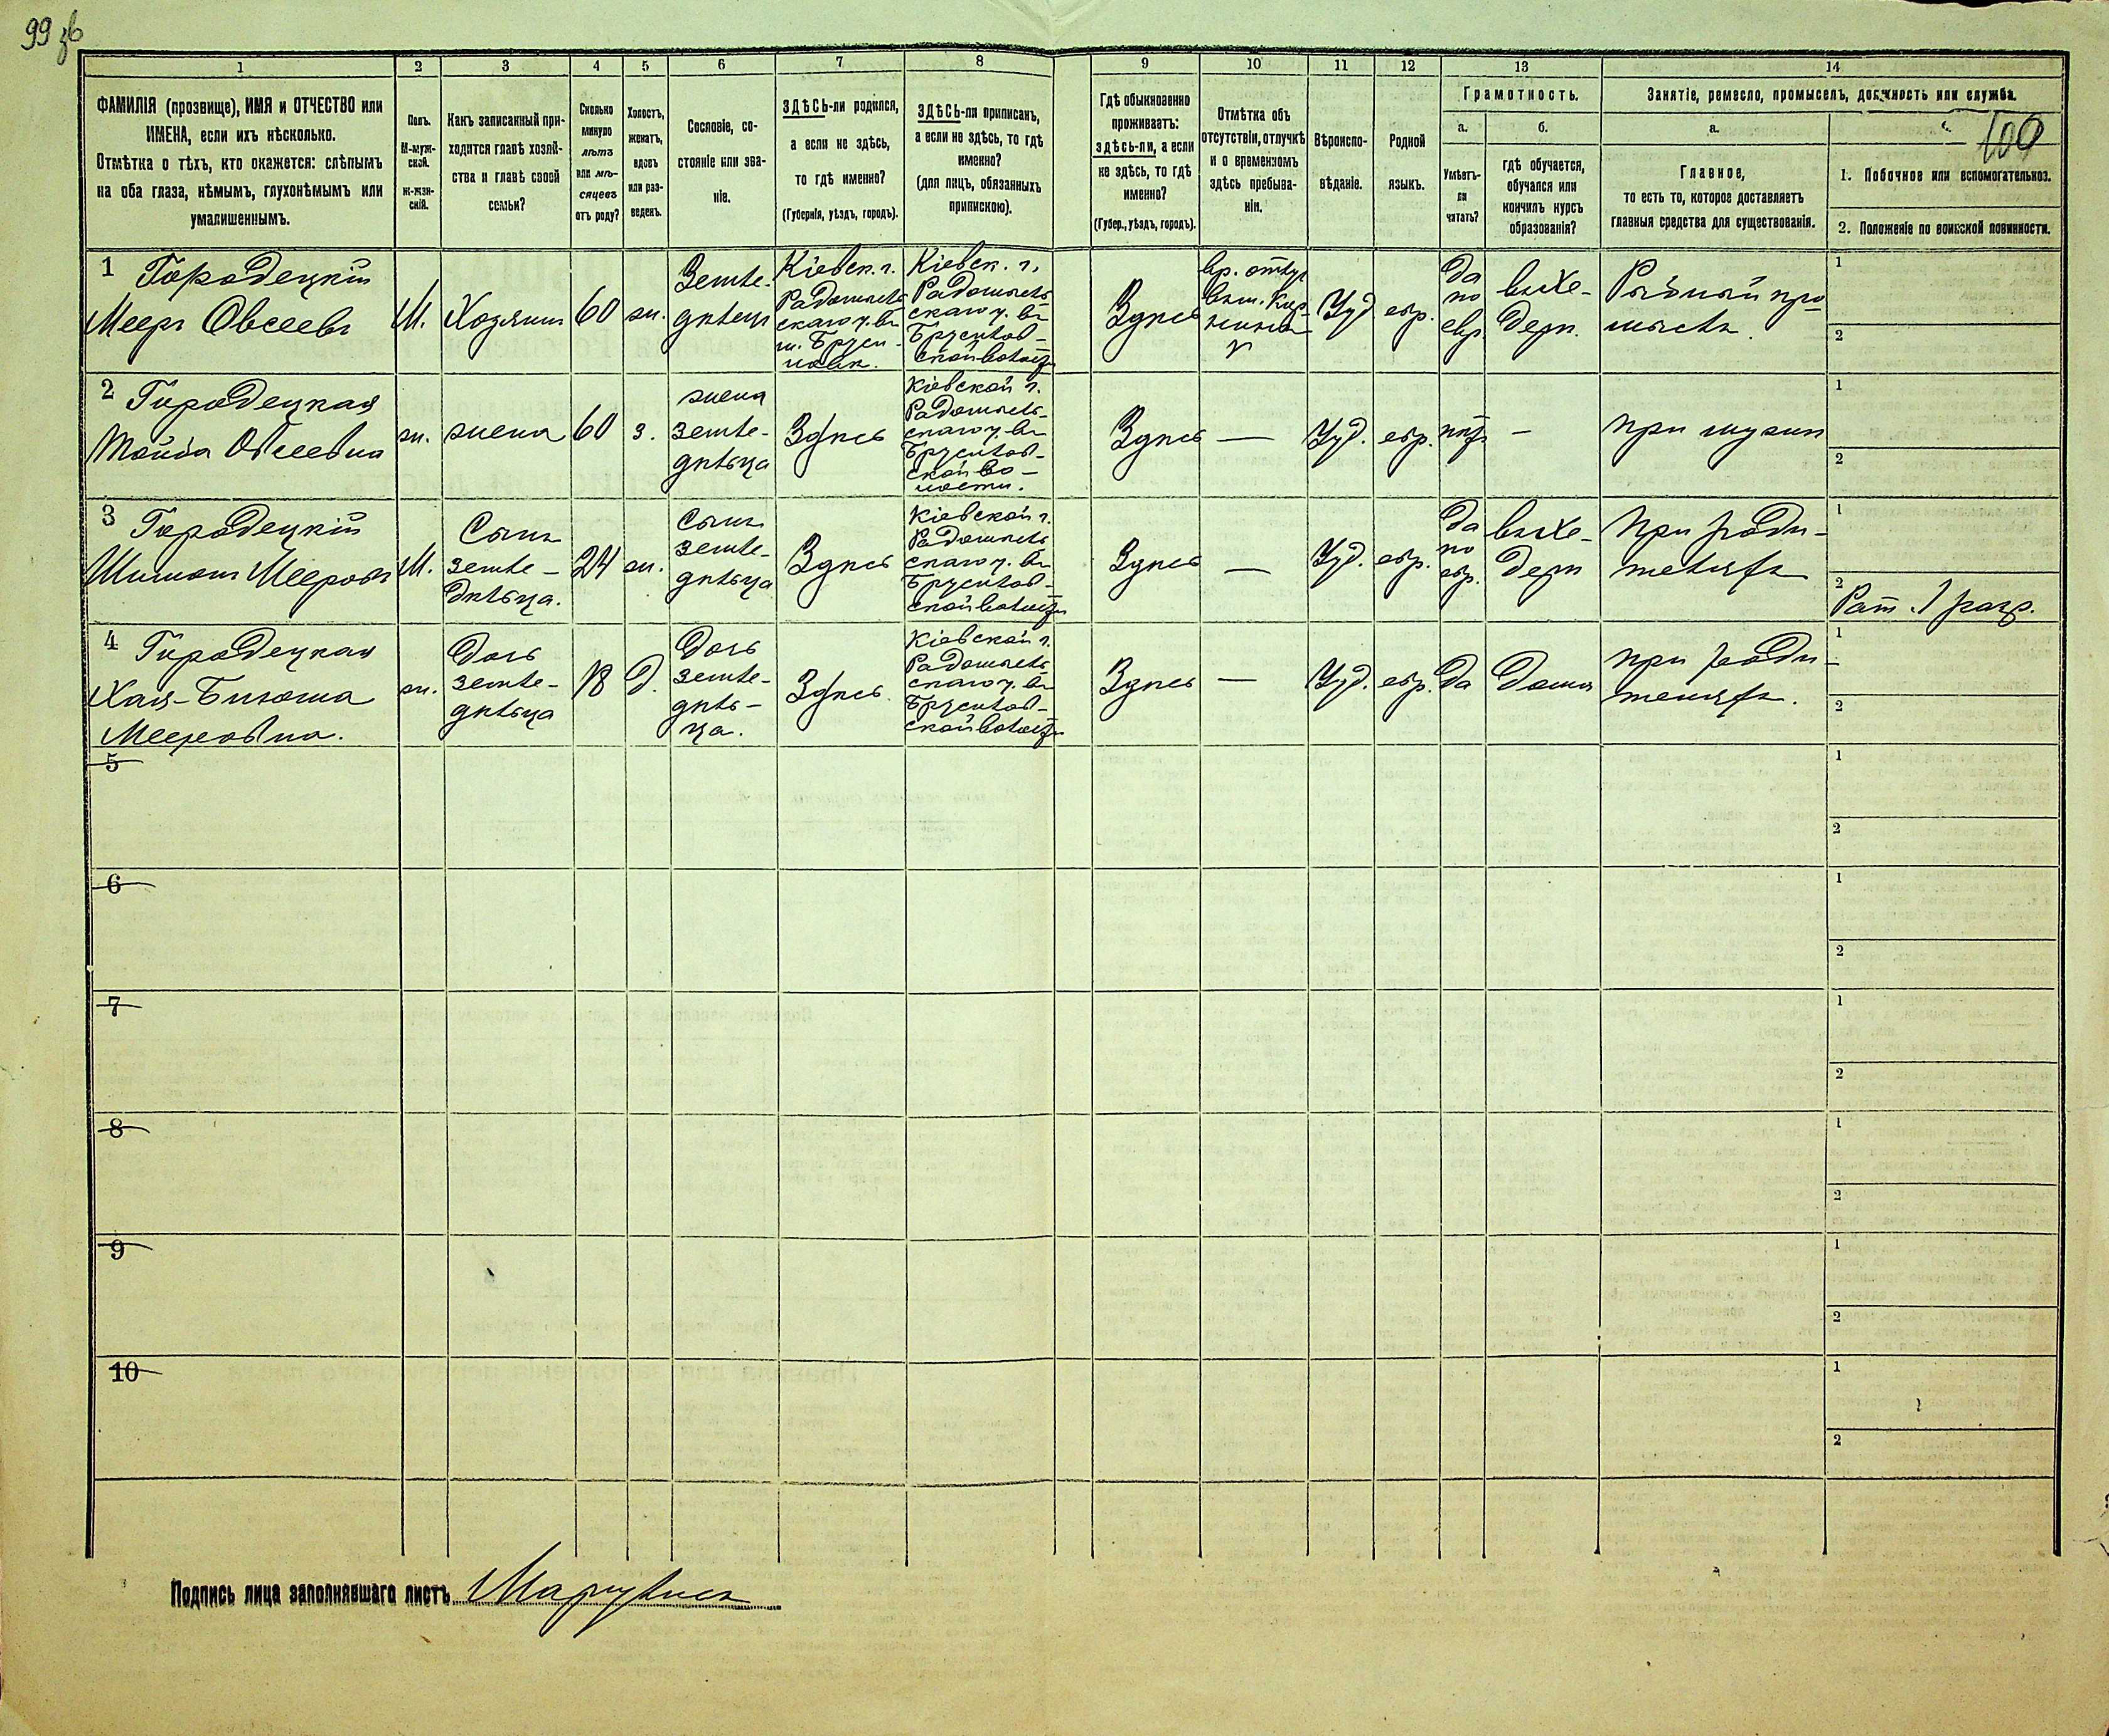 99 зв
1 2 3 4 5 6 7 8 9 10 11 12 13 14
ФАМИЛІЯ (прозвище), ИМЯ и ОТЧЕСТВО или
ИМЕНА, если ихъ нѣсколько.
Отмѣтка о тѣхъ, кто окажется: слѣпымъ
на оба глаза, нѣмымъ, глухонѣмымъ или
умалишеннымъ.
Полъ.
М-муж-
ской.
ж-жен-
скій.
Какъ записанный при-
ходится главѣ хозяй-
ства и главѣ своей
семьи?
Сколько
минуло
лѣтъ
или мѣ-
сяцевъ
отъ роду?
Холостъ,
женатъ,
вдовъ
или раз-
веденъ.
Сословіе, со-
стояніе или зва-
ніе.
ЗДѢСЬ-ли родился,
а если не здѣсь,
то гдѣ именно?
(Губернія, уѣздъ, городъ).
ЗДѢСЬ-ли приписанъ,
а если не здѣсь, то гдѣ
именно?
(для лицъ, обязанныхъ
припискою).
Гдѣ обыкновенно
проживаетъ:
здѣсь-ли, а если
не здѣсь, то гдѣ
именно?
(Губер., уѣздъ, городъ).
Отмѣтка объ
отсутствіи, отлучкѣ
и о временномъ
здѣсь пребыва-
ніи.
Вѣроиспо-
вѣданіе.
Родной
языкъ.
Грамотность.
а.
Умѣетъ-
ли
читать?
б.
гдѣ обучается,
обучался или
кончилъ курсъ
образованія?
Занятіе, ремесло, промыселъ, должность или служба.
а.
Главное,
то есть то, которое доставляетъ
главныя средства для существованія.
100
1. Побочное или вспомогательное.
2. Положеніе по воинской повинности.
1 Городецкій
Мееръ Овсеевъ
М.
Хозяинъ
60
ж.
Земле-
дѣлецъ
Кіевск. г.
Радомысль-
скаго у. въ
м. Бруси-
ловѣ.
Кіевск. г.
Радомысль-
скаго у. въ
Брусилов-
ской волости
Здѣсь
Іуд
евр.
да
по
евр.
въ хе-
дерѣ.
Рыбный про-
мыселъ.
1
2
2 Городецкая
Овсеевна
ж.
жена
60
з.
жена
земле-
дѣльца
Здѣсь
Кіевской г.
Радомысль-
скаго у. въ
Брусилов-
ской во-
лости.
Здѣсь
—
Іуд.
евр.
нѣтъ
—
при мужѣ
1
2
3 Городецкій
Шимонъ Мееровъ
М.
Сынъ
земле-
дѣльца.
24
ж.
Сынъ
земле-
дѣльца
Здѣсь
Кіевской г.
Радомысль-
скаго у. въ
Брусилов-
ской волости
Здѣсь
—
Іуд.
евр.
да
по
евр.
въ хе-
дерѣ
при роди-
теляхъ
1
2
Рат. 1 разр.
4 Городецкая
Хая-
Мееровна.
ж.
Дочь
земле-
дѣльца
18
д.
Дочь
земле-
дѣль-
ца.
Здѣсь
Кіевской г.
Радомысль-
скаго у. въ
Брусилов-
ской волости
Здѣсь
—
Іуд.
евр.
да
дома
при роди-
теляхъ.
1
2
5
1
2
6
1
2
7
1
2
8
1
2
9
1
2
10
1
2
Подпись лица заполнявшаго листъ